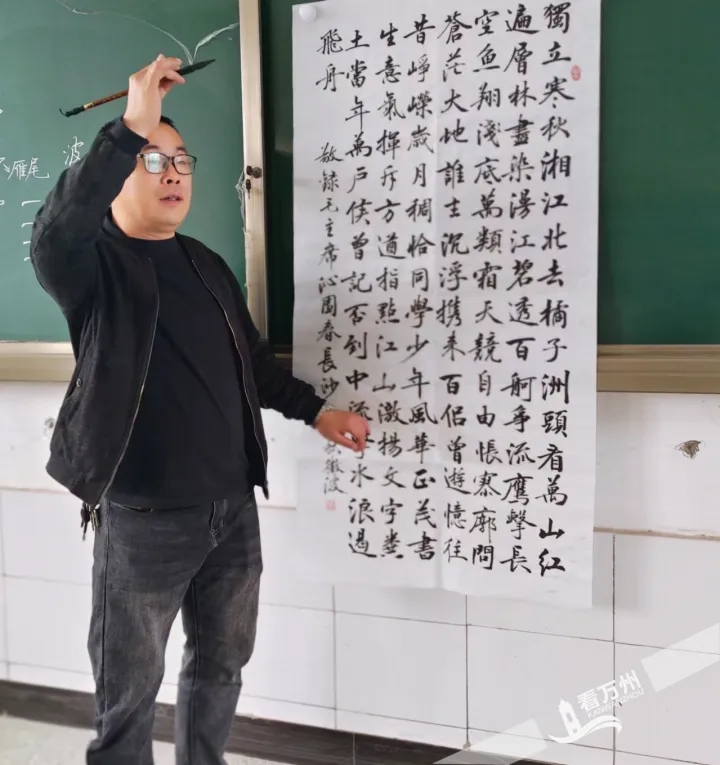 獨立寒秋湘江北去橘子洲頭看萬山紅
遍層林盡染漫江碧透百舸爭流鷹擊長
空魚翔淺底萬類霜天競自由悵寥廓問
蒼茫大地誰主沉浮携來百侶曾遊憶往
昔崢嶸歲月稠恰同學少年風華正茂書
生意氣揮斥方遒指點江山激揚文字糞
土當年萬户侯曾記否到中流水浪遏
飛舟
敬録毛主席沁園春長沙 波
雁尾 波
看万州
KANWANZHOU